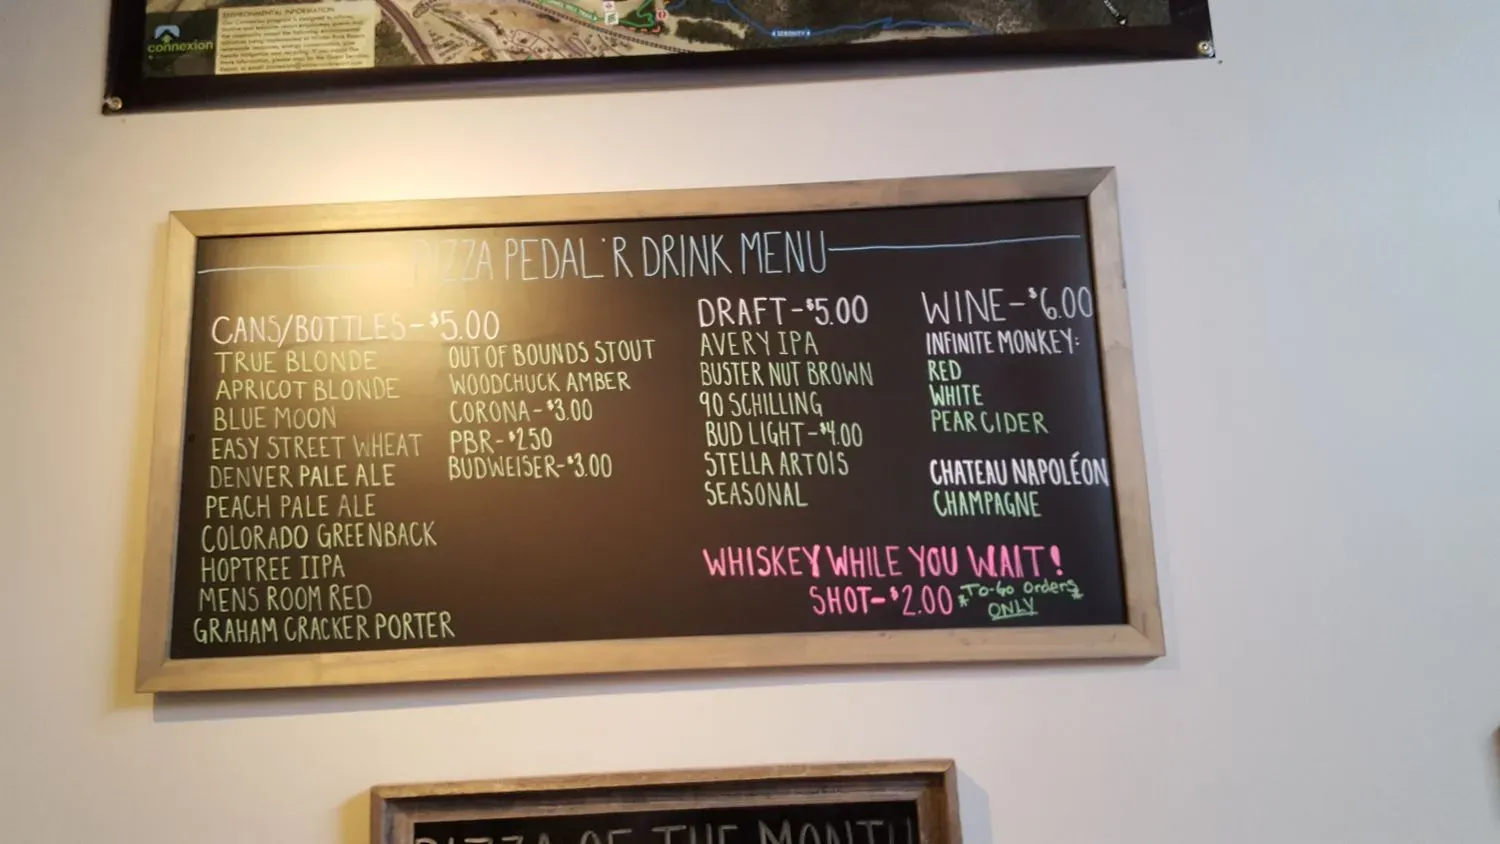 connexion
ENVIRONMENTAL INFORMATION
SERENITY
PIZZA PEDAL'R DRINK MENU
CANS/BOTTLES-$5.00
TRUE BLONDE
APRICOT BLONDE
BLUE MOON
EASY STREET WHEAT
DENVER PALE ALE
PEACH PALE ALE
COLORADO GREENBACK
HOPTREE IIPA
MENS ROOM RED
GRAHAM CRACKER PORTER
OUT OF BOUNDS STOUT
WOODCHUCK AMBER
CORONA-$3.00
PBR-$2.50
BUDWEISER-$3.00
DRAFT-$5.00
AVERY IPA
BUSTER NUT BROWN
90 SCHILLING
BUD LIGHT-$4.00
STELLA ARTOIS
SEASONAL
WINE-$6.00
INFINITE MONKEY:
RED
WHITE
PEAR CIDER
CHATEAU NAPOLÉON
CHAMPAGNE
WHISKEY WHILE YOU WAIT!
SHOT-$2.00 *To-Go Orders*
ONLY
PIZZA OF THE MONTH